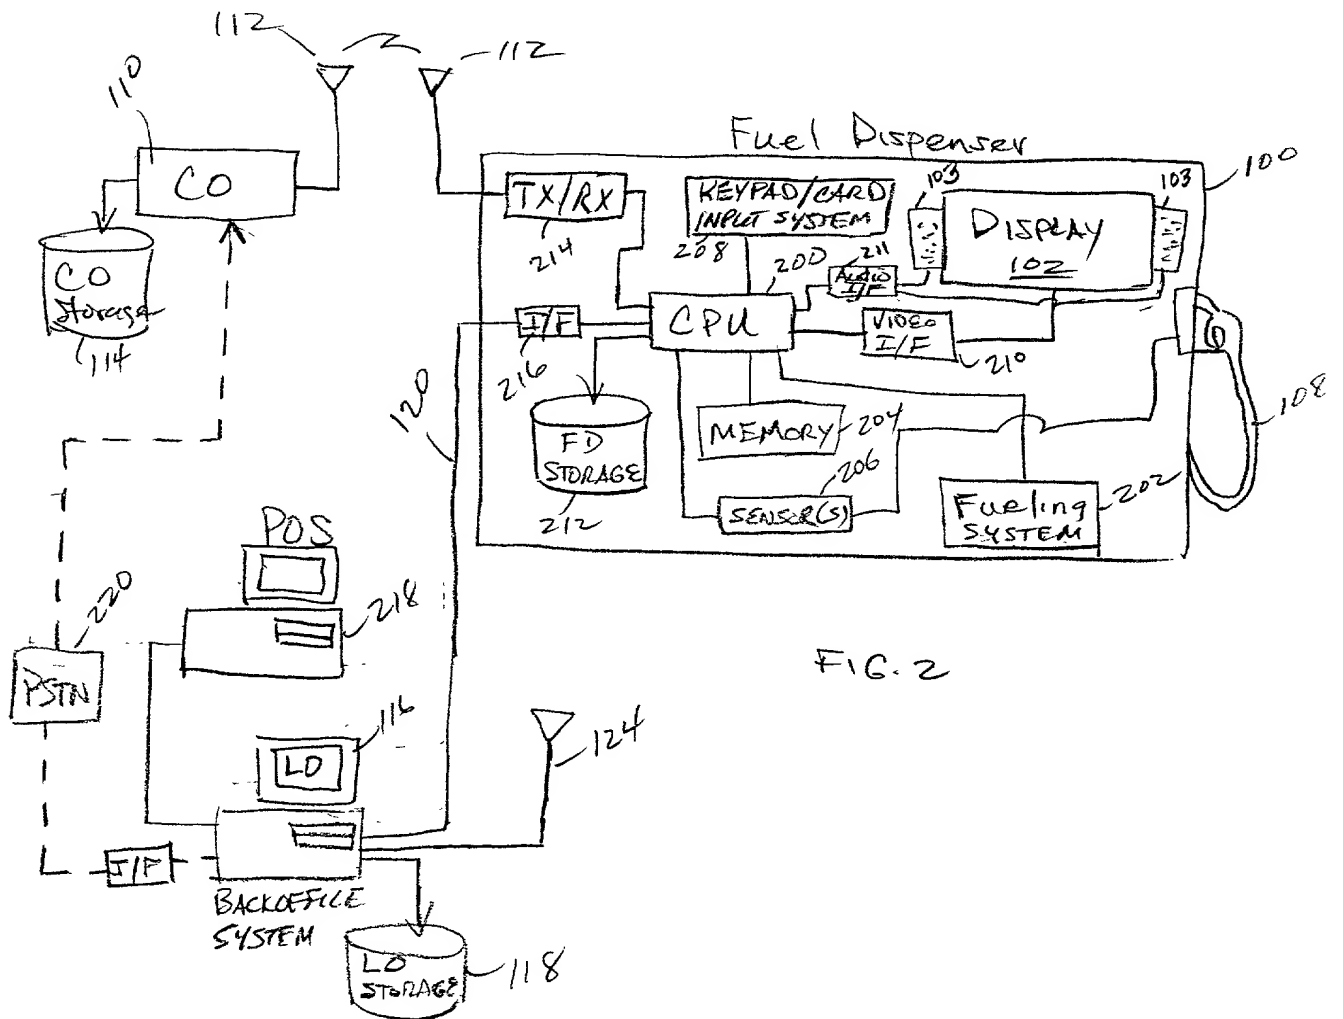 112
112
110
CO
CO
Storage
114
Fuel Dispenser
100
TX/RX
214
KEYPAD/CARD
INPUT SYSTEM
208
103
103
DISPLAY
102
200
211
AUDIO
I/F
I/F
216
CPU
VIDEO
I/F
210
108
120
FD
STORAGE
212
MEMORY
204
206
SENSOR(S)
Fueling
SYSTEM
202
POS
218
220
PSTN
FIG. 2
116
LO
124
I/F
BACKOFFICE
SYSTEM
LO
STORAGE
118